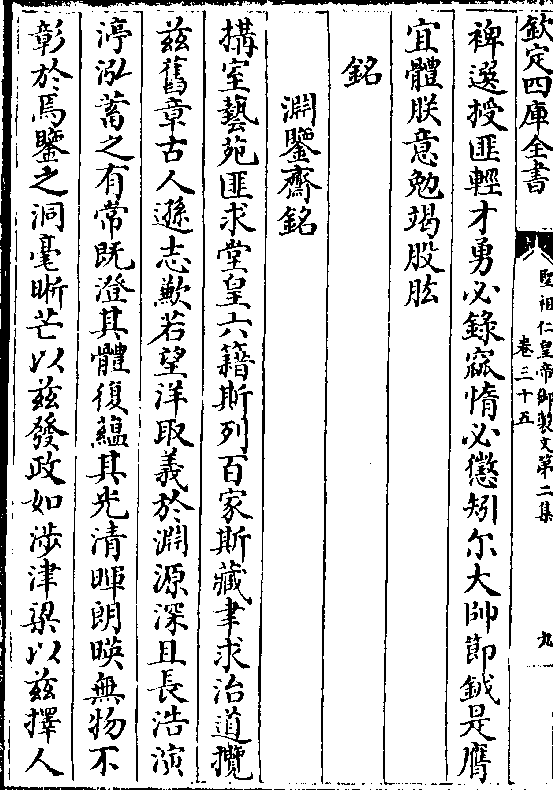 欽定四庫全書
聖祖仁皇帝御製文第二集
卷三十五
九
裨選授匪輕才勇必錄窳惰必懲矧尔大帥節鉞是膺
宜體朕意勉竭股肱
銘
淵鑒齋銘
搆室藝苑匪求堂皇六籍斯列百家斯藏聿求治道攬
茲舊章古人遜志歉若望洋取義於淵源深且長浩演
渟泓蓄之有常既澄其體復蘊其光清暉朗暎無物不
彰於焉鑒之洞毫晰芒以茲發政如涉津梁以茲擇人